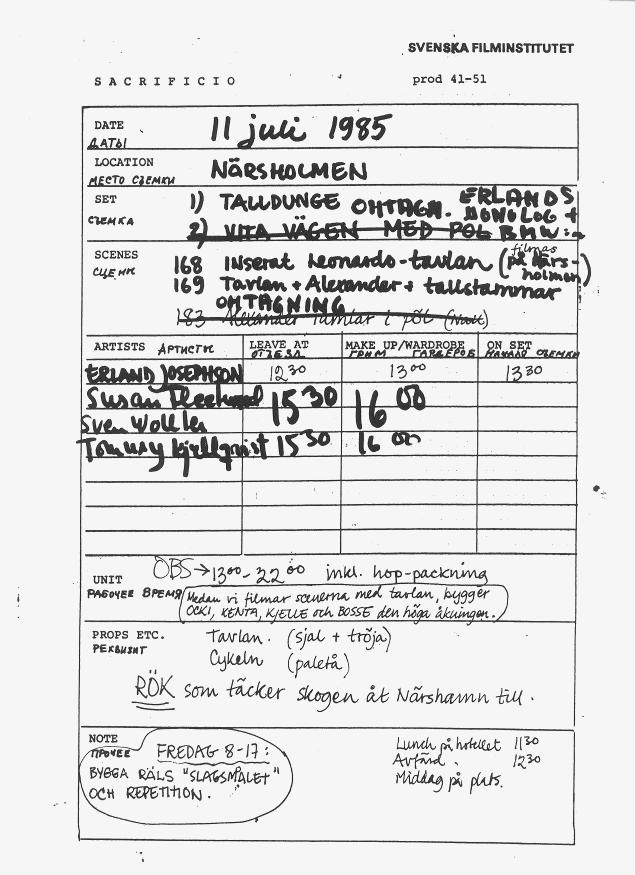 SVENSKA FILMINSTITUTET
SACRIFICIO prod 41-51
DATE 11 juli 1985
ДАТЫ
LOCATION NÄRSHOLMEN
МЕСТО СЪЕМКИ
SET 1) TALLDUNGE OMTAGN. ERLANDS MONOLOG +
СЪЕМКА 2) VITA VÄGEN MED PÖL BMW:n
SCENES 168 Inserat Leonardo-tavlan (filmas på Närsholmen)
СЦЕНЫ 169 Tavlan + Alexander + tallstammar
OMTAGNING
183 Alexander ramlar i pöl (Natt)
ARTISTS АРТИСТЫ LEAVE AT ОТЪЕЗД MAKE UP/WARDROBE ГРИМ ГАРДЕРОБ ON SET НАЧАЛО СЪЕМКИ
ERLAND JOSEPHSON 12 30 13 00 13 30
Susan Fleetwood 15 30 16 00
Sven Wollter
Tommy Kjellqvist 15 30 16 00
OBS → 13 00 - 22 00 inkl. hop-packning
UNIT
РАБОЧЕЕ ВРЕМЯ Medan vi filmar scenerna med tavlan, bygger
OCKI, KENTA, KJELLE och BOSSE den höga åkningen.
PROPS ETC. Tavlan. (sjal + tröja)
РЕКВИЗИТ Cykeln (paletå)
RÖK som täcker skogen åt Närshamn till.
NOTE
ПРОЧЕЕ FREDAG 8-17:
BYGGA RÄLS "SLAGSMÅLET"
OCH REPETITION.
Lunch på hotellet 11 30
Avfärd. 12 30
Middag på plats.